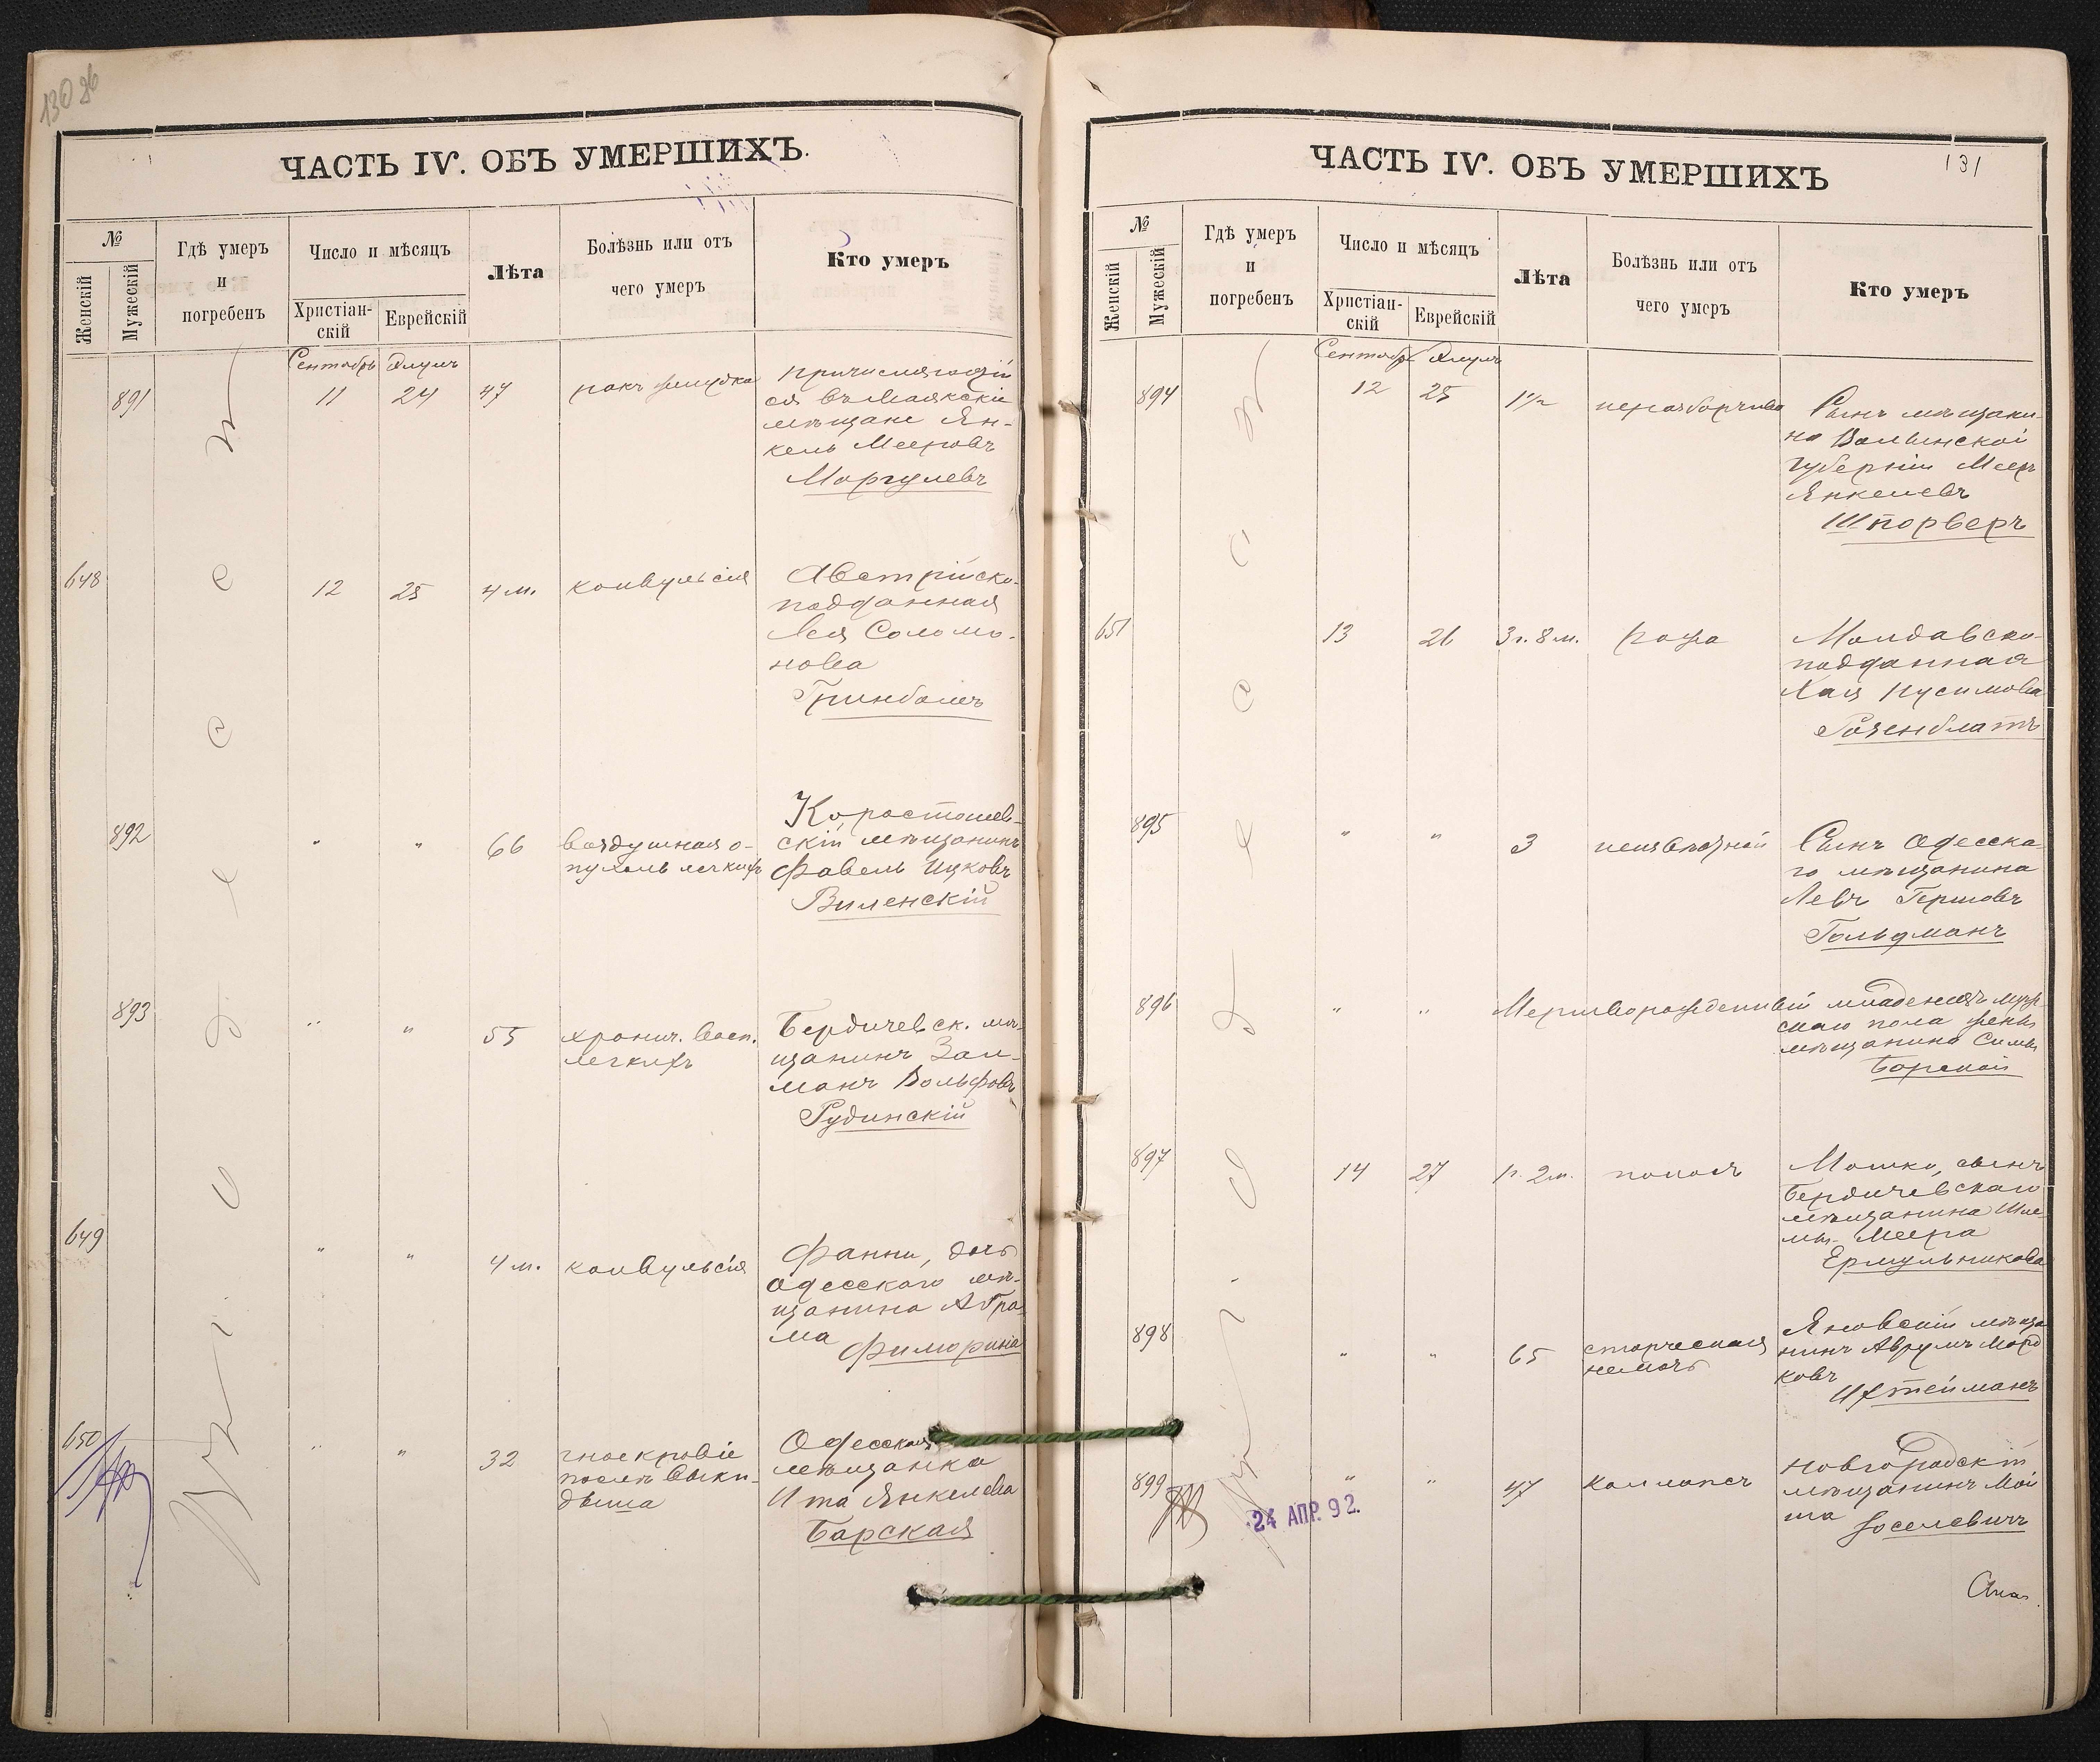 130 об
ЧАСТЬ IV. ОБЪ УМЕРШИХЪ.
№
Женскій
Мужескій
Гдѣ умеръ
и
погребенъ
Число и мѣсяцъ
Христіан-
скій
Еврейскій
Лѣта
Болѣзнь или отъ
чего умеръ
Кто умеръ
Сентябрь Элулъ
891 11 24 47 ракъ желудка
причисляющій
ся въ Маякскіе
мѣщане Ян-
кель Мееровъ
Моргулевъ
648 12 25 4 м. конвульсія
Австрійско-
подданная
Лея Соломо-
нова
Гринбалтъ
892 " " 66 воздушная о-
пухоль легкихъ
Коростышев-
скій мѣщанинъ
Фавель Ицковъ
Виленскій
893 " " 55 хронич. восп.
легкихъ
Бердичевск. мѣ-
щанинъ Зал-
манъ Вольфовъ
Рудинскій
649 " " 4 м. конвульсія
Фанни, дочь
одесскаго мѣ-
щанина Абра
ма Филюрина
650 " " 32 гноекровіе
послѣ выки-
дыша
Одесская
мѣщанка
Ита Янкелева
Барская
ЧАСТЬ IV. ОБЪ УМЕРШИХЪ
131
№
Женскій
Мужескій
Гдѣ умеръ
и
погребенъ
Число и мѣсяцъ
Христіан-
скій
Еврейскій
Лѣта
Болѣзнь или отъ
чего умеръ
Кто умеръ
Сентябр Элулъ
894 12 25 1½ неразборчиво
Сынъ мѣщани-
на Волынской
губерніи Меер
Янкелевъ
Шпорберъ
651 13 26 3 г. 8 м. рожа
Молдавско-
подданная
Хая Нусимова
Розенблатъ
895 " " 3 неизвѣстной
Сынъ Одесска-
го мѣщанина
Левъ Гершовъ
Гольдманъ
896 " " Мертворожденный младенецъ муж
скаго пола жены
мѣщанина Симы
Борской
897 14 27 1 г. 2 м. поносъ
Мошко, сынъ
Бердичевскаго
мѣщанина Шле-
мы-Меера
Ермульникова
898 " " 65 старческая
немочь
Яновскій мѣща
нинъ Аврумъ Морд
ковъ
Ихтейманъ
899 " " 47 коллапсъ
Новгородскій
мѣщанинъ Мой
ша Іоселевичъ
24 АПР. 92.